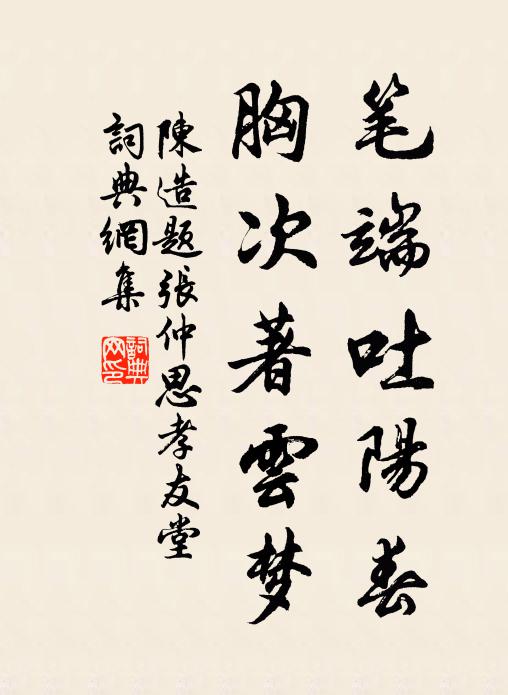 笔端吐陽春
胸次著雲梦
陳造題張仲思孝友堂
詞典網集
詞典
网印